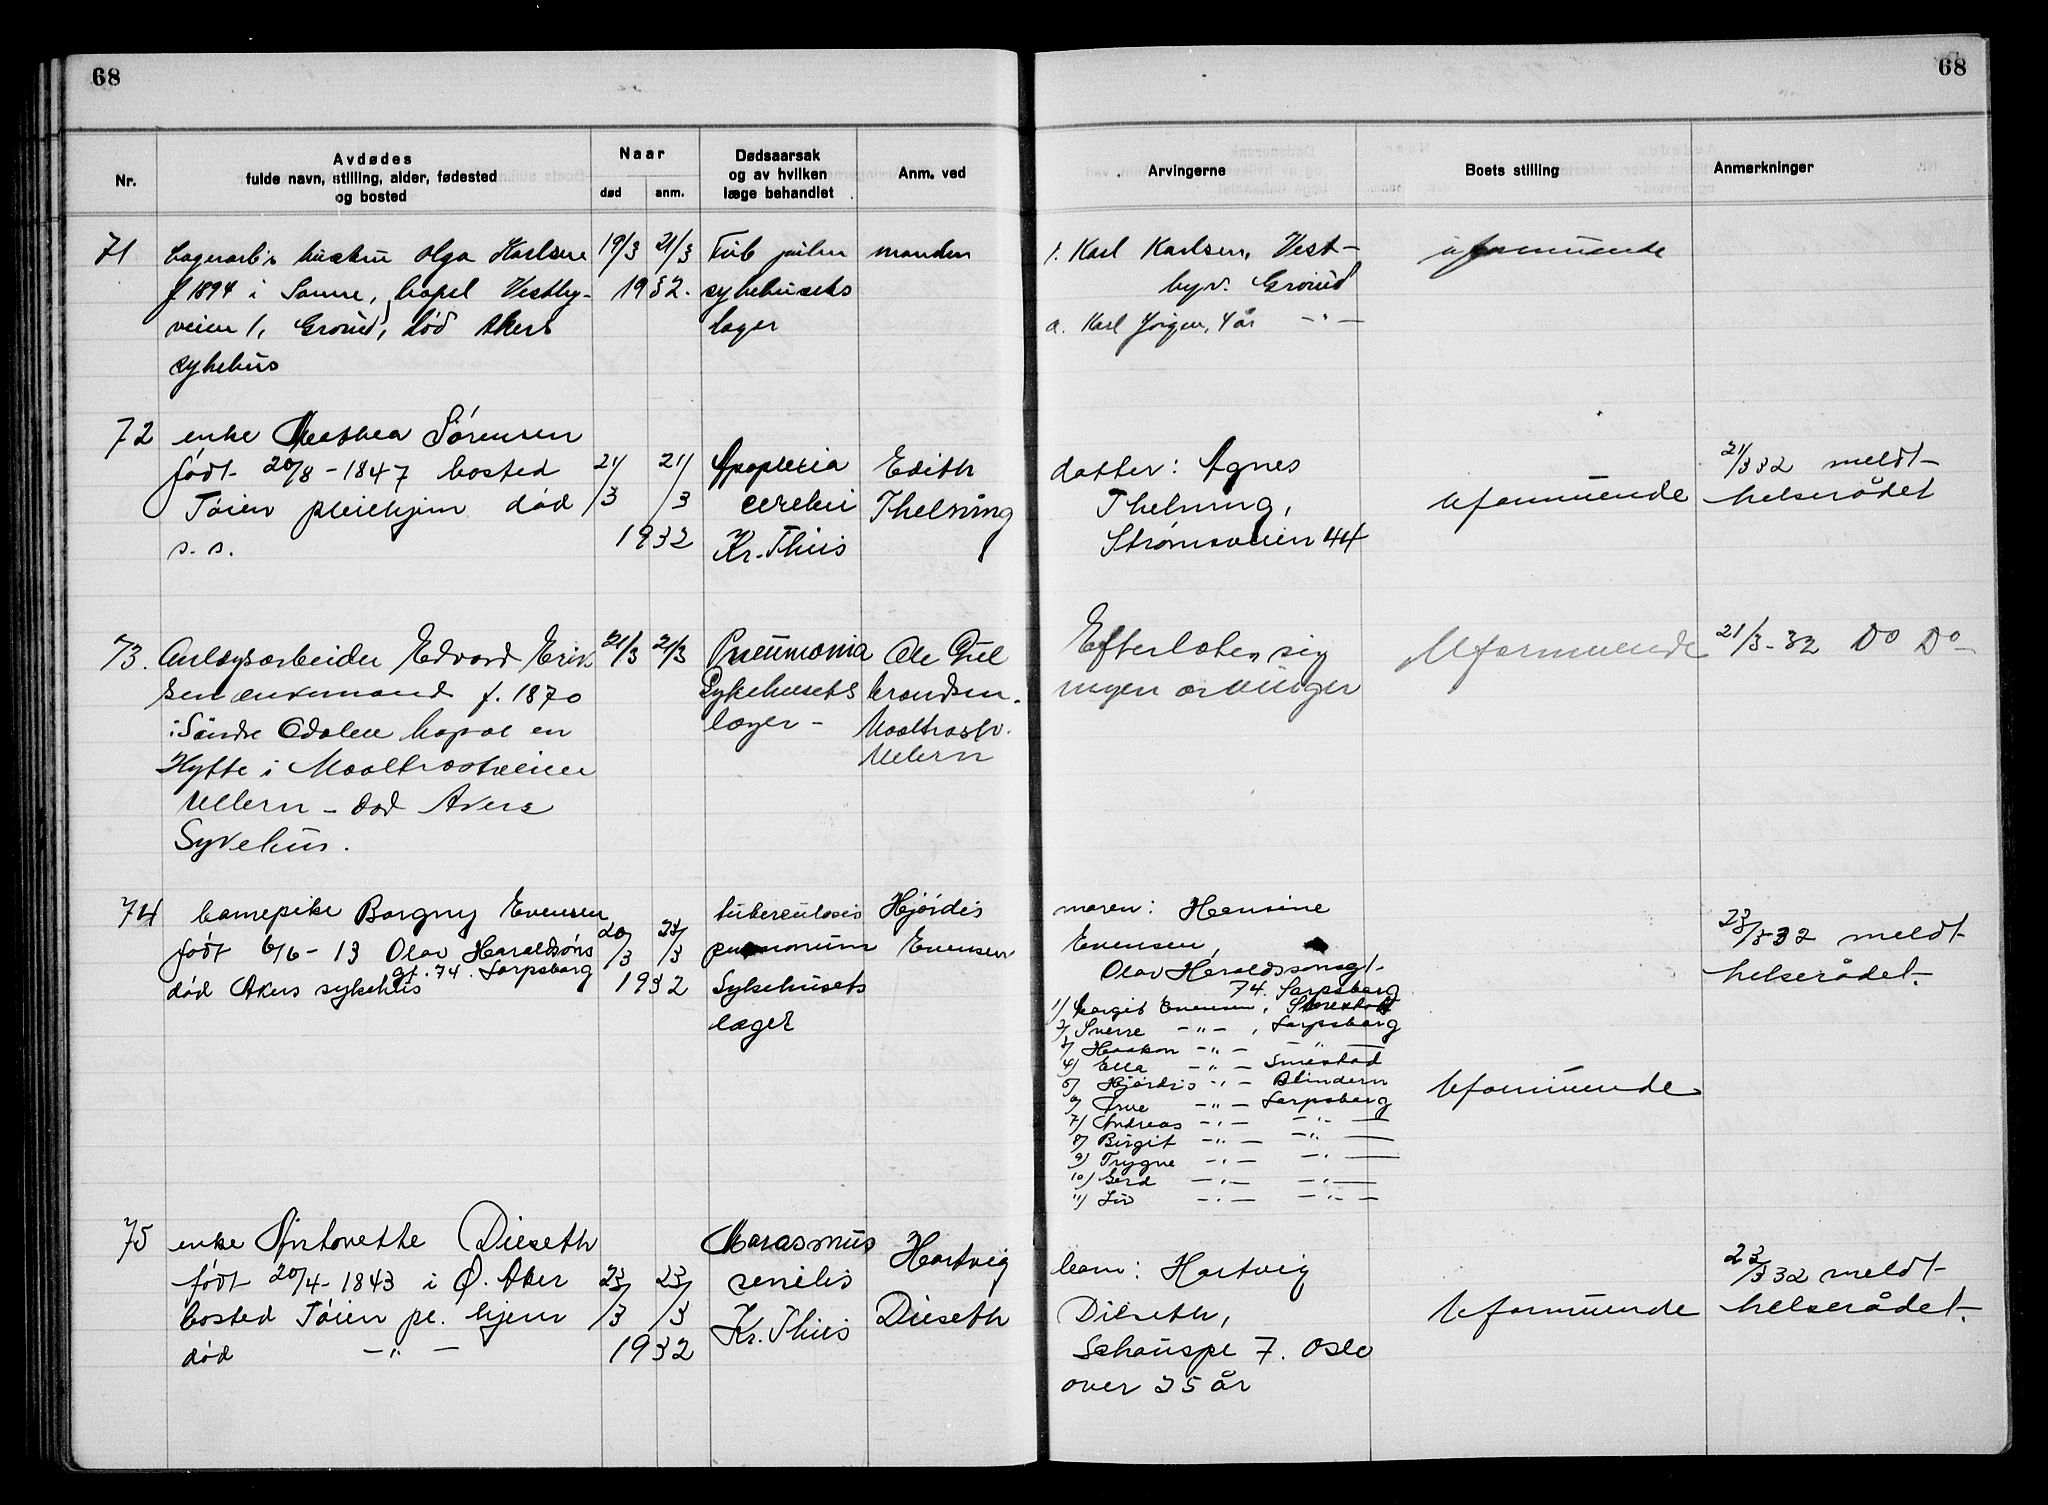 68
68
Nr.
Avdødes
fulde navn, stilling, alder, fødested
og bosted
Naar
død
anm.
Dødsaarsak
og av hvilken
læge behandlet
Anm. ved
Arvingerne
Boets stilling
Anmerkninger
71
hustru Olga Karlsen
f 1894 i bopel Vestby-
veien 1, Grorud, død Akers
sykehus
19/3 21/3
1932.
Tub pulm
sykehusets
læger
manden
1. Karl Karlsen, Vest-
byv. Grorud
a. Karl Jørgen, 4 år -"-
uformuende
72
enke Mathea Sørensen
født 20/8 - 1847 bosted
Tøien pleiehjem død
s. s.
21/3 21/3
1932
Apoplexia
cerebri
Kr. Thiis
Edith
Thelning
datter: Agnes
Thelning,
Strømsveien 44
Uformuende
21/3 32 meldt
helserådet
73.
Anlægsarbeider Edvard Erik
sen enkemand f. 1870
i Søndre Odalen bopæl en
Hytte i Maaltrostveien
Ullern - død Akers
Sykehus.
21/3 21/3
Pneumonia
Sykehusets
læger -
Ole Gul
brandsen.
Maaltrostv.
Ullern
Efterlater sig
ingen arvinger
Uformuende
21/3 - 32 Do Do
74
barnepike Borgny Evensen
født 6/6 - 13 Olav Haraldsøns
gt. 74. Sarpsborg
død Akers sykehus
20/3 23/3
1932
tuberculosis
pulmonum
Sykehusets
læger
Hjørdis
Evensen
moren: Hansine
Evensen,
Olav Haraldssonsgt.
74. Sarpsborg
1) Margit Evensen, Smestad
2) Sverre -"- , Sarpsborg
3) Haakon -"- -"-
4) Ella -"- Smestad
5) Hjørdis -"- Blindern
6) Arne -"- Sarpsborg
7) Andreas -"- -"-
8) Birgit -"- -"-
9) Trygve -"- -"-
10) Gerd -"- -"-
11) Liv -"- -"-
Uformuende
23/3 32 meldt
helserådet.
75
enke Antonette Dieseth
født 20/4 - 1843 i Ø. Aker
bosted Tøien pl. hjem
død -"-
23/3 23/3
1932
Marasmus
senilis
Kr. Thiis
Hartvig
Dieseth
barn: Hartvig
Dieseth,
Schouspl 7. Oslo
over 25 år
Uformuende
23/3 32 meldt
helserådet.